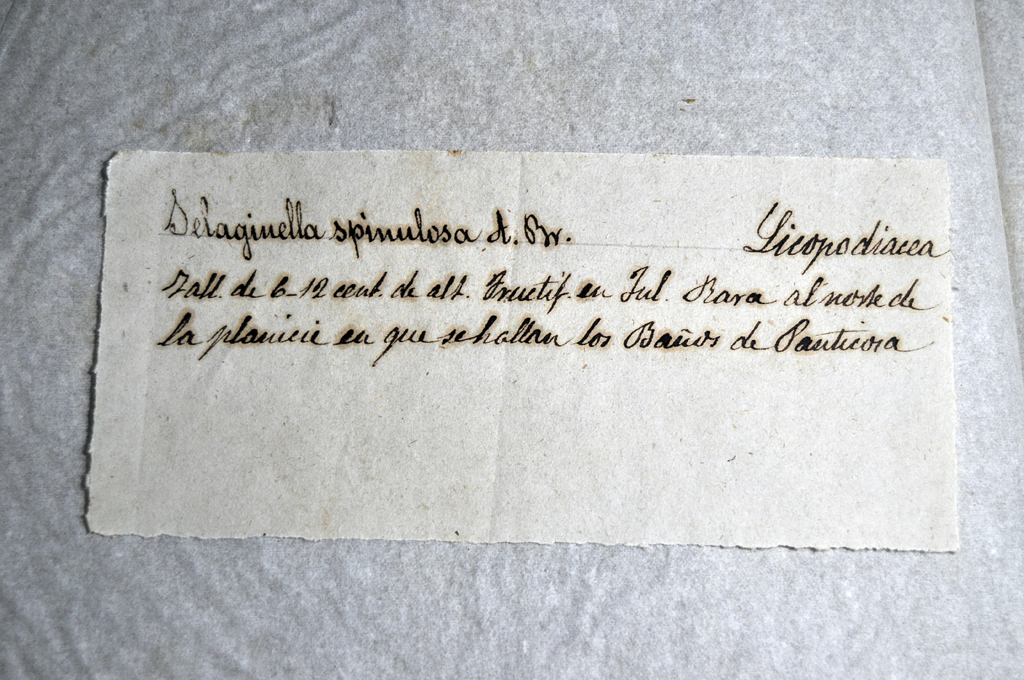 Selaginella spinulosa A. Br. Licopodiacea
Tall. de 6-12 cent. de alt. Fructif. en Jul. Rara al norte de
la planicie en que se hallan los Baños de Panticosa